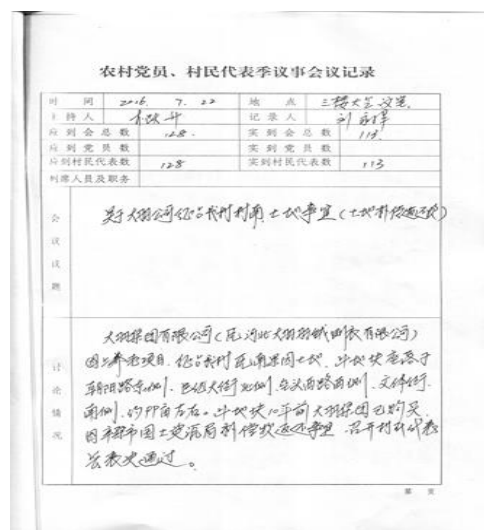 农村党员、村民代表季议事会议记录
时 间 2016. 7. 22 地 点 三楼大会议室
主 持 人 记 录 人 刘
应 到 会 总 数 128. 实 到 会 总 数 113.
应 到 党 员 数 实 到 党 员 数
应到村民代表数 128 实到村民代表数 113
列席人员及职务
会议议题
关于大羽公司征占我村村南土地事宜(土地补偿返还款)
讨论情况
大羽集团有限公司(原河北大羽羽绒制衣有限公司)
因上养老项目,征占我村原南果园土地,此地块座落于
朝阳路东侧、
南侧,约 亩左右。此地块 年前大羽集团已购买,
因 市国土资源局补偿款返还事宜,召开村民代表
会表决通过。
第 页